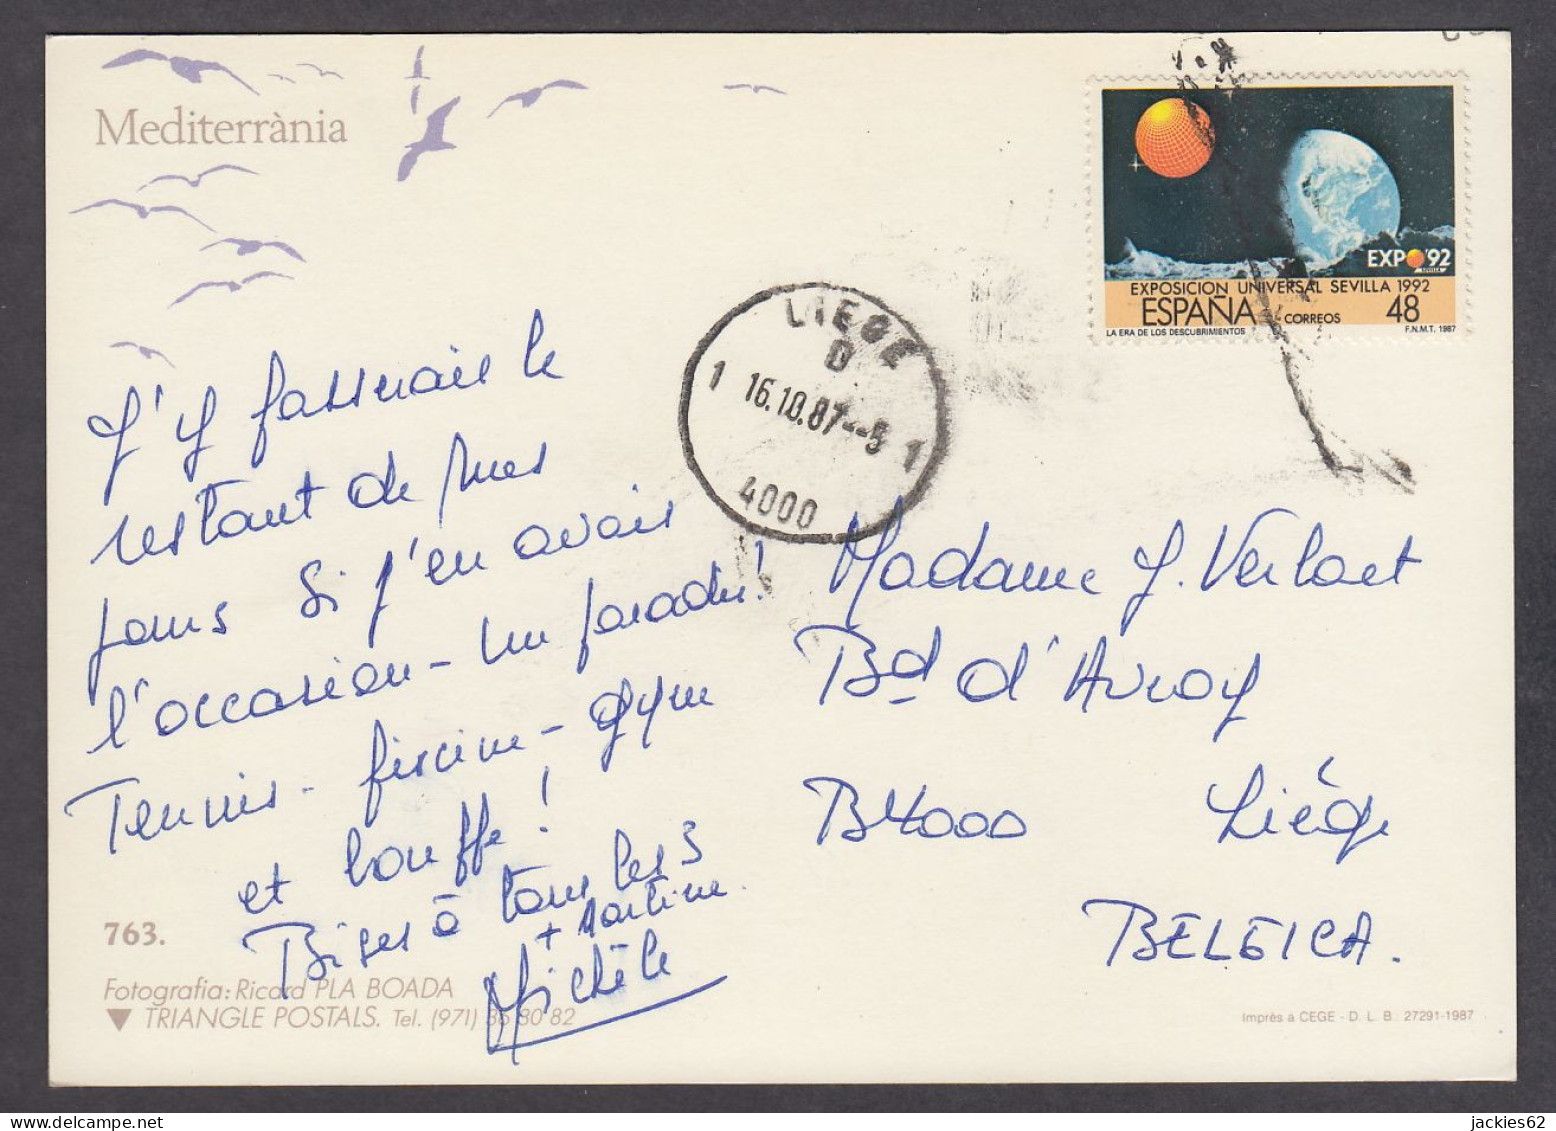 Mediterrània
EXPO'92
SEVILLA
EXPOSICION UNIVERSAL SEVILLA 1992
ESPAÑA CORREOS 48
LA ERA DE LOS DESCUBRIMIENTOS F.N.M.T. 1987
LIEGE
D
1 16.10.87--5 1
4000
J'y passerais le
restant de mes
jours si j'en avais
l'occasion - un paradis!
Tennis - piscine - gym
et bouffe!
Bises à tous les 3
+ Martine.
Michèle
Madame J. Verlaet
Bd d'Avroy
B4000 Liège
BELGICA.
763.
Fotografia: Ricard PLA BOADA
TRIANGLE POSTALS. Tel. (971) 36 80 82
Imprès a CEGE - D. L. B. 27291-1987
jackies62